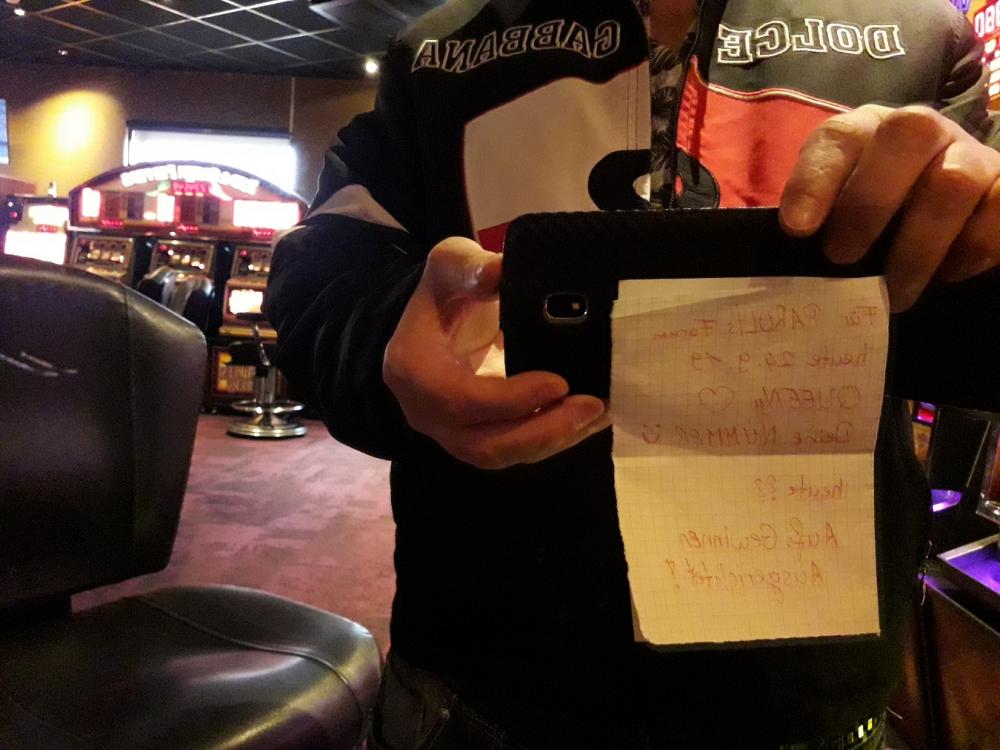 DOLCE GABBANA
Für PAROLI's Forum
heute 29.9.19
QUEENy ♡
Deine NUMMER ü
heute ??
Auf's Gewinnen
Ausgerichtet!